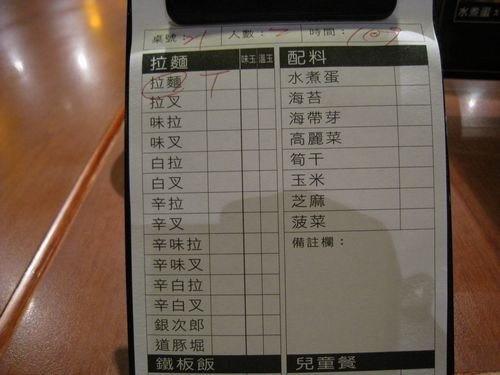 桌號: 21 人數: 2 時間:
拉麵 味玉 溫玉 配料
拉麵 T 水煮蛋
拉叉 海苔
味拉 海帶芽
味叉 高麗菜
白拉 筍干
白叉 玉米
辛拉 芝麻
辛叉 菠菜
辛味拉 備註欄:
辛味叉
辛白拉
辛白叉
銀次郎
道豚堀
鐵板飯 兒童餐
水煮蛋